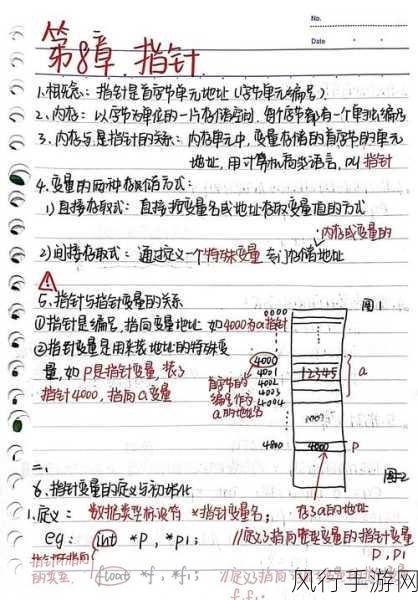 No.
Date
第8章 指针
1.相关概念：指针是首字节单元地址（字节单元编号）.
2.内存：以字节为单位的一片存储空间，每个字节都有一个单独编号
3.内存与指针的关系：内存单元中，变量存储的首字节的单元
地址，用计算机语言，叫指针
4.变量的两种存储方式：
1)直接存取式：直接按变量名或地址存取变量值的方式
内存或变量的
2)间接存取式：通过定义一个特殊变量专门存储地址
5.指针与指针变量的关系
图1
①指针是编号，指向变量地址 如4000为a指针
②指针变量是用来装地址的特殊变
量，如P是指针变量，装了
指针4000，指向a变量
0000
4000
4001
4002
4003
4004
首字节的
编号作为
a的地址名
12345
a
4800
4000
P
图2
二、
6.指针变量的定义与初始化
存了a的地址
1.定义： 数据类型标识符 *指针变量名；
eg: int *P, *P1; //定义了指向整型变量的指针变量
P, P1
指针所指向
的类型
float *f, *f1; //定义了指向
f, f1
风行手游网